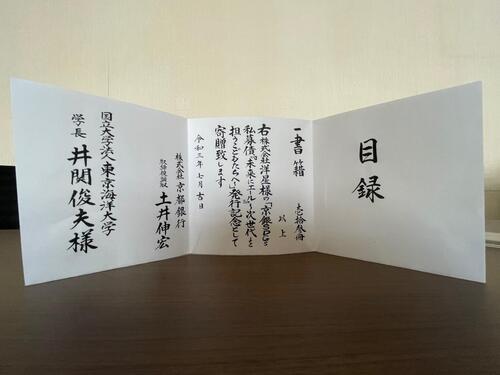 目録
一書籍 壱拾参冊
以上
右株式会社洋屋様の「京銀SDGs
私募債『未来にエール』～次世代を
担うこどもたちへ」発行記念として
寄贈致します
令和三年七月吉日
株式会社京都銀行
取締役頭取 土井伸宏
国立大学法人東京海洋大学
学長 井関俊夫様